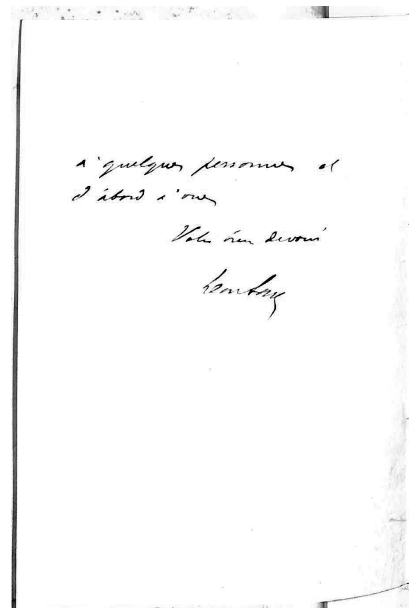 à quelques personnes et
d'abord à vous
Votre bien dévoué